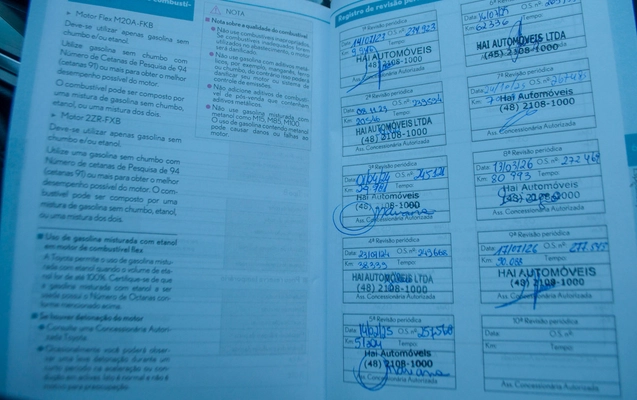 combustí-
▷ Motor Flex M20A-FKB
Deve-se utilizar apenas gasolina sem
chumbo e/ou etanol.
Utilize gasolina sem chumbo com
Número de Cetanas de Pesquisa de 94
(cetanas 91) ou mais para obter o melhor
desempenho possível do motor.
O combustível pode ser composto por
uma mistura de gasolina sem chumbo,
etanol, ou uma mistura dos dois.
▷ Motor 2ZR-FXB
Deve-se utilizar apenas gasolina sem
chumbo e/ou etanol.
Utilize uma gasolina sem chumbo com
Número de cetanas de Pesquisa de 94
(cetanas 91) ou mais para obter o melhor
desempenho possível do motor. O com-
bustível pode ser composto por uma
mistura de gasolina sem chumbo, etanol,
ou uma mistura dos dois.
■ Uso de gasolina misturada com etanol
em motor de combustível flex
A Toyota permite o uso de gasolina mistu-
rada com etanol quando o volume de eta-
nol for de até 100%. Certifique-se de que
a gasolina misturada com etanol a ser
usada possui o Número de Octanas con-
forme mencionado acima.
■ Se houver detonação do motor
● Consulte uma Concessionária Autori-
zada Toyota.
● Ocasionalmente você poderá obser-
var uma leve detonação durante um
curto período na aceleração ou con-
dução em aclives. Isto é normal e não é
motivo para preocupação.
NOTA
Nota sobre a qualidade do combustível
● Não use combustíveis inapropriados.
Se combustíveis inapropriados forem
utilizados no abastecimento, o motor
será danificado.
● Não use gasolina com aditivos metá-
licos, por exemplo, manganês, ferro
ou chumbo, do contrário isso poderá
danificar seu motor ou sistema de
controle de emissões.
● Não adicione aditivos de combustí-
vel de pós-venda que contenham
aditivos metálicos.
● Não use gasolina misturada com
metanol como M15, M85, M100.
O uso de gasolina contendo metanol
pode causar danos ou falhas ao
motor.
Registro de revisão
1ª Revisão periódica
Data O.S. nº
Km
HAI AUTOMÓVEIS
(48) 2108-1000
Ass. Concessionária Autorizada
2ª Revisão periódica
Data 08.11.23 O.S. nº
Km 20546
HAI AUTOMÓVEIS LTDA
(48) 2108-1000
Ass. Concessionária Autorizada
3ª Revisão periódica
Data O.S. nº
Km Tempo
Hai Automóveis
(48) 2108-1000
Ass. Concessionária Autorizada
4ª Revisão periódica
Data O.S. nº
Km 38333 Tempo
HAI AUTOMÓVEIS LTDA
(48) 2108-1000
Ass. Concessionária Autorizada
5ª Revisão periódica
Data O.S. nº
Km Tempo
Hai Automóveis
(48) 2108-1000
Ass. Concessionária Autorizada
Km 62336
HAI AUTOMÓVEIS LTDA
(48) 2108-1000
Ass. Concessionária Autorizada
Hai Automóveis
(48) 2108-1000
Ass. Concessionária Autorizada
Revisão periódica
Data 17/03/26 O.S. nº
Km 80 993 Tempo
Hai Automóveis
(48) 2108-1000
Ass. Concessionária Autorizada
9ª Revisão periódica
Data O.S. nº
Km Tempo
HAI AUTOMÓVEIS
(48) 2108-1000
Ass. Concessionária Autorizada
10ª Revisão periódica
Data O.S. nº
Km Tempo
Ass. Concessionária Autorizada